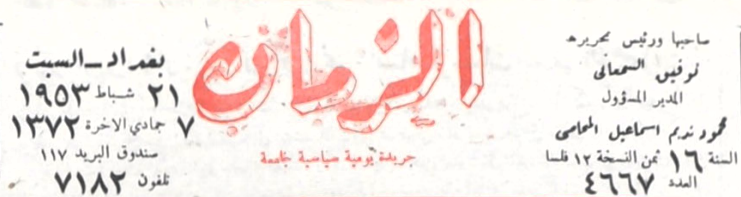 صاحبها ورئيس تحريره
توفيق السمعاني
المدير المسؤول
محمود نديم اسماعيل المحامي
السنة ١٦ ثمن النسخة ١٢ فلسا
العدد ٤٦٦٧
الزمان
جريدة يومية سياسية جامعة
بغداد - السبت
٢١ شباط ١٩٥٣
٧ جمادي الاخرة ١٣٧٢
صندوق البريد ١١٧
تلفون ٧١٨٢